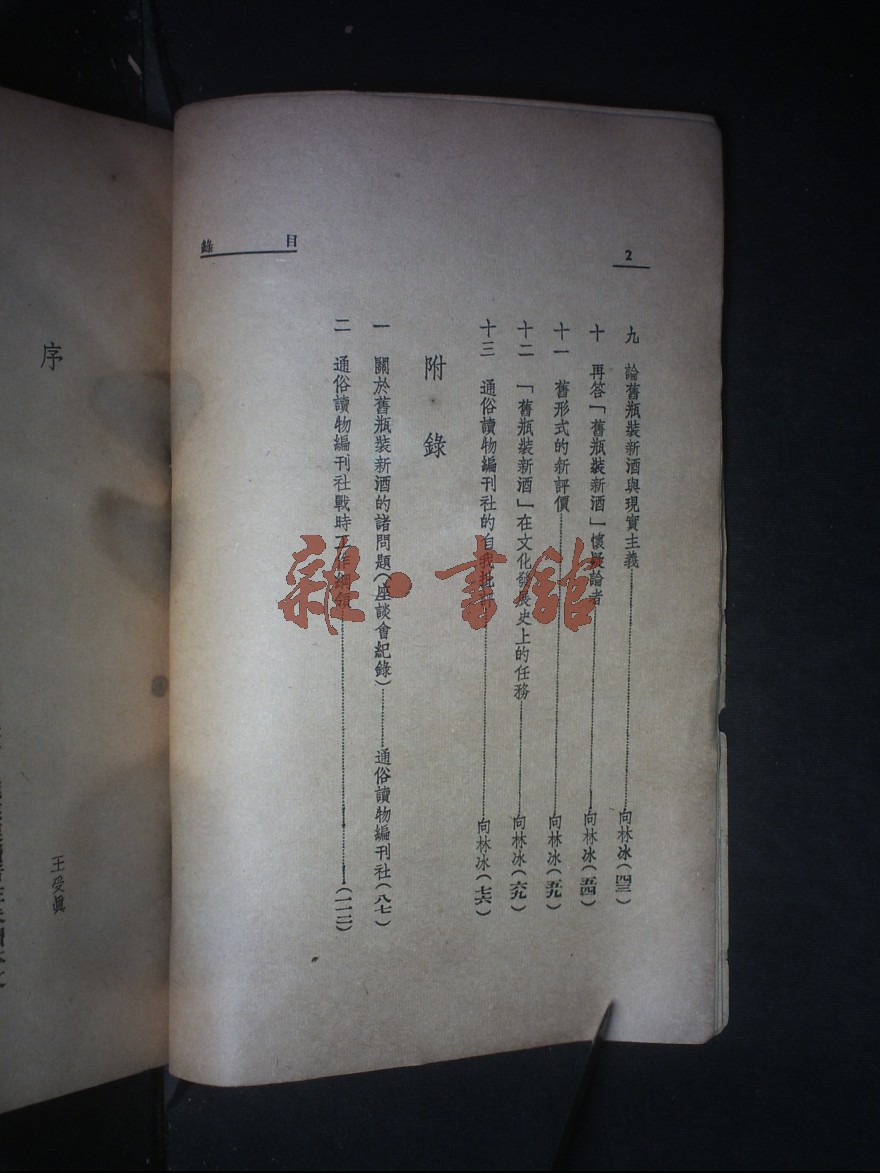 2
目錄
九 論舊瓶裝新酒與現實主義……向林冰(四三)
十 再答「舊瓶裝新酒」懷疑論者……向林冰(五四)
十一 舊形式的新評價……向林冰(五九)
十二 「舊瓶裝新酒」在文化發展史上的任務……向林冰(六九)
十三 通俗讀物編刊社的自我批評……向林冰(七六)
附錄
一 關於舊瓶裝新酒的諸問題(座談會紀錄)……通俗讀物編刊社(八七)
二 通俗讀物編刊社戰時工作綱領……(一一二)
雜·書館
序
王受真